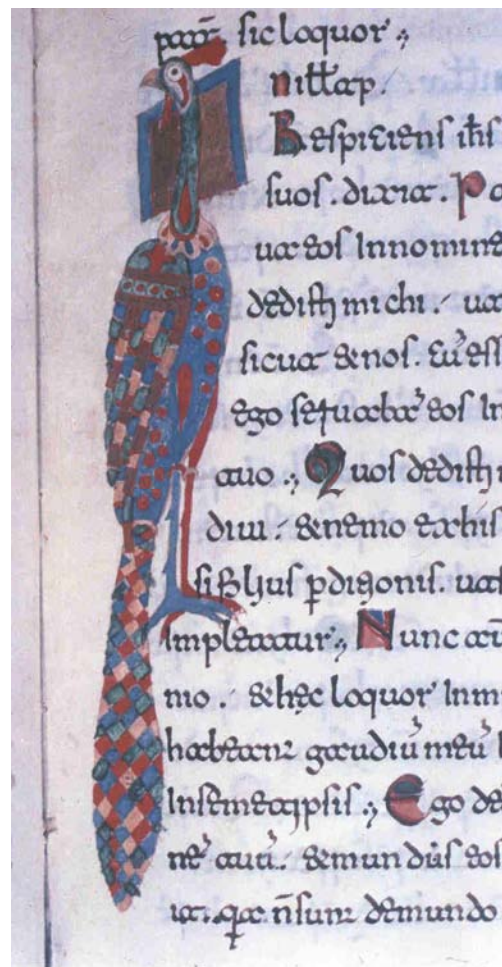 patr̄ sic loquor.,
Respiciens ih̄s
suos. dixit. Pa
ua eos Innomine
dedisti michi. ut
sicut & nos. Cū ess
ego seruabā eos In
tuo., Quos dedisti
diui. & nemo ex his
si filius p̄ditionis. ut
Impleatur., Nunc aut
nio. & hęc loquor Inm
habeant gaudiū meū
Insemetipsis., Ego de
nē tuū. & mundus eos
it. qa n̄ sunt de mundo